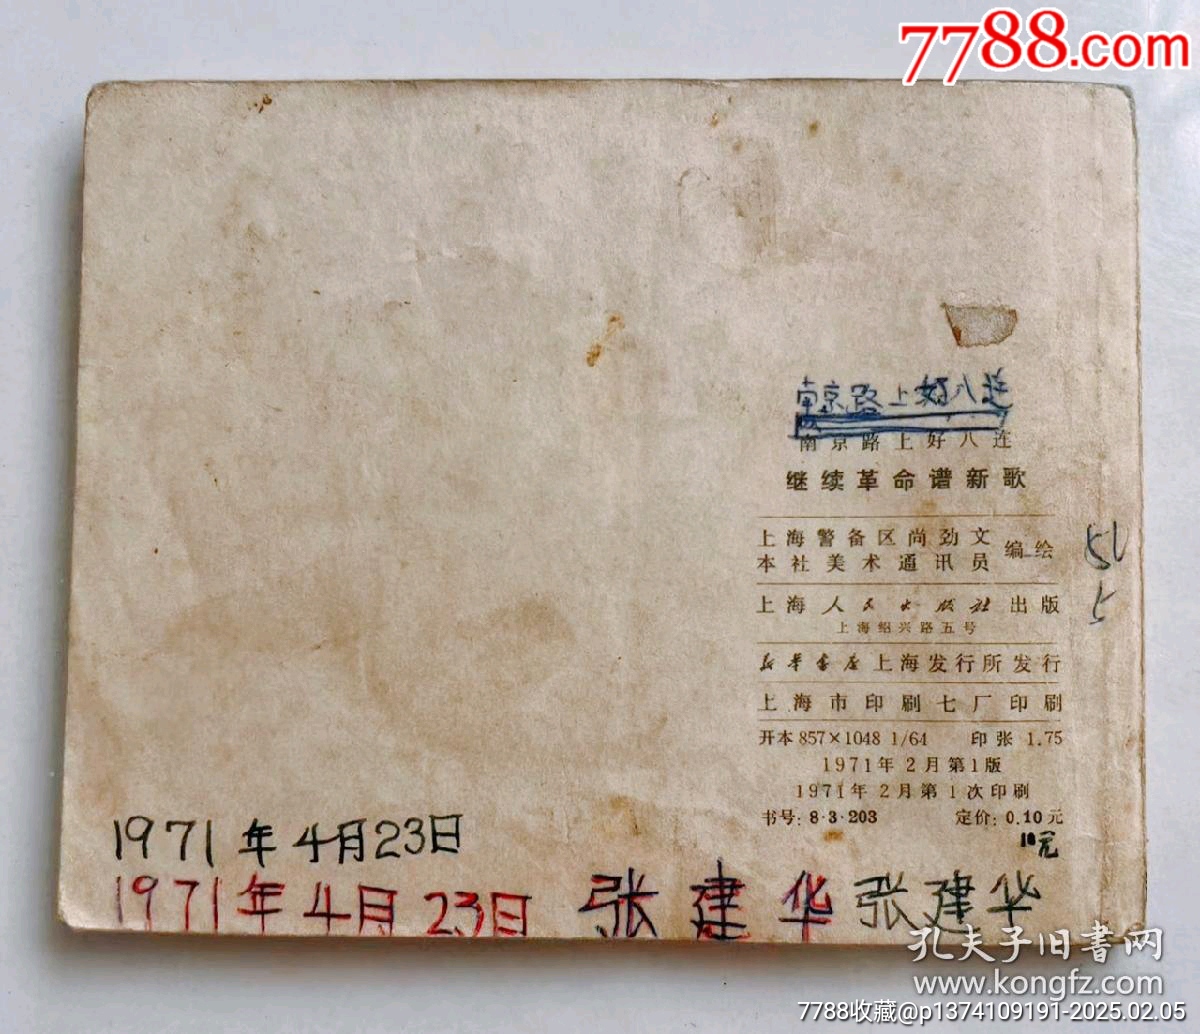 7788.com
南京路上好八连
南京路上好八连
继续革命谱新歌
上海警备区尚劲文
本社美术通讯员 编绘
上海人民出版社出版
上海绍兴路五号
新华书店上海发行所发行
上海市印刷七厂印刷
开本 857×1048 1/64 印张 1.75
1971年2月第1版
1971年2月第1次印刷
书号: 8·3·203 定价: 0.10元
10元
1971年4月23日
1971年4月23日 张建华 张建华
孔夫子旧书网
www.kongfz.com
7788收藏@p1374109191-2025.02.05